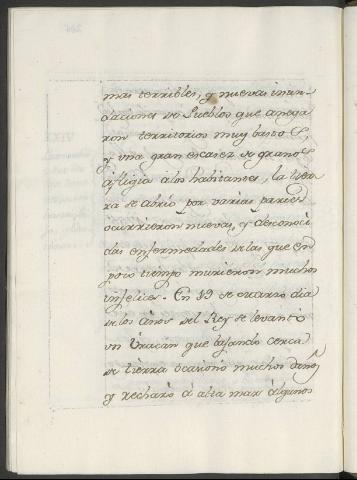 mas terribles, y nuevas inun-
daciones de Pueblos que anega
ron territorios muy bastos,
y una gran escasez de granos
afligia a los habitantes, la tier-
ra se abrio por varias partes
ocurrieron nuevas, y desconoci
das enfermedades de las que en
poco tiempo murieron muchos
infelices. En 19 de quarto dia
de los años del Rey se levantó
un Uracán que bajando cerca
de tierra ocasionó muchos daños
y rechazó á alta mar algunos